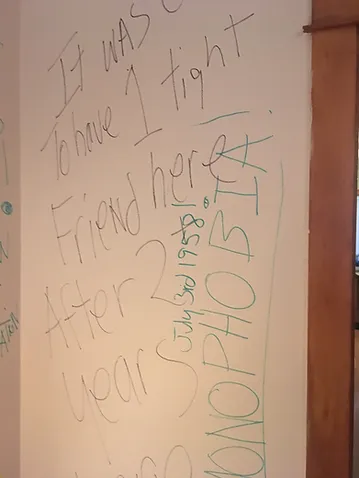 It WAS
To have 1 tight
Friend here
After 2
years
July 3rd 1958!
MONOPHOBIA!